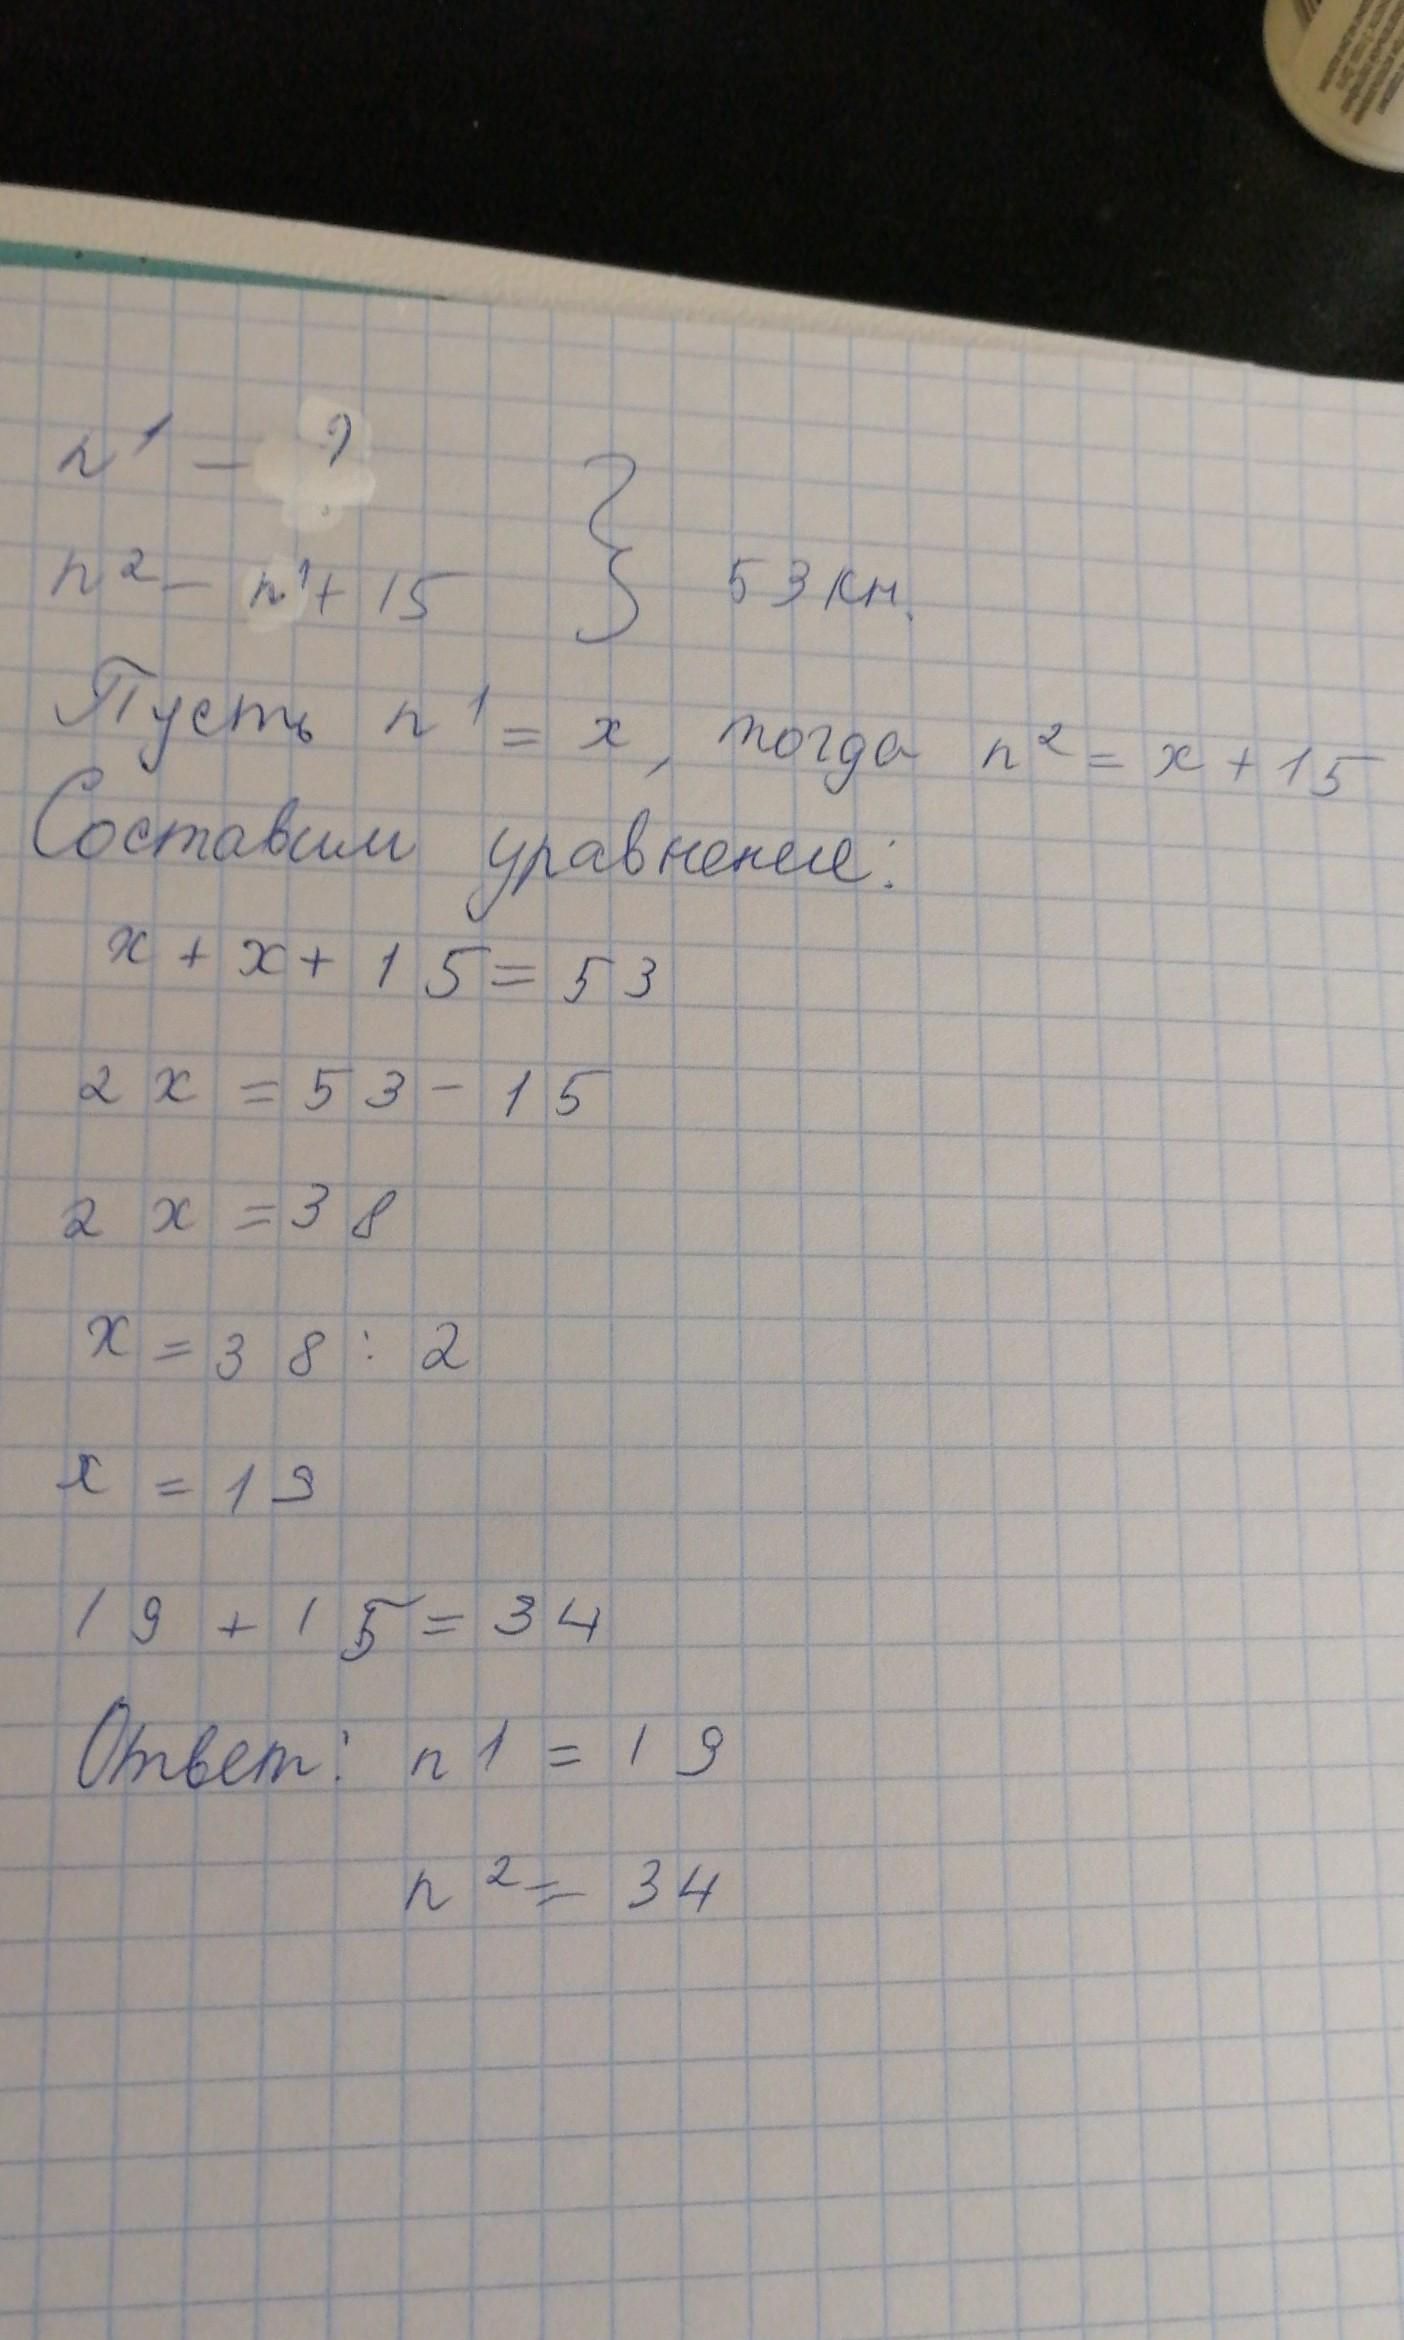 n¹ – ?
n² – n¹ + 15 } 53 кн.
Пусть n¹ = x, тогда n² = x + 15
Составим уравнение:
x + x + 15 = 53
2x = 53 – 15
2x = 38
x = 38 : 2
x = 19
19 + 15 = 34
Ответ: n1 = 19
n² = 34